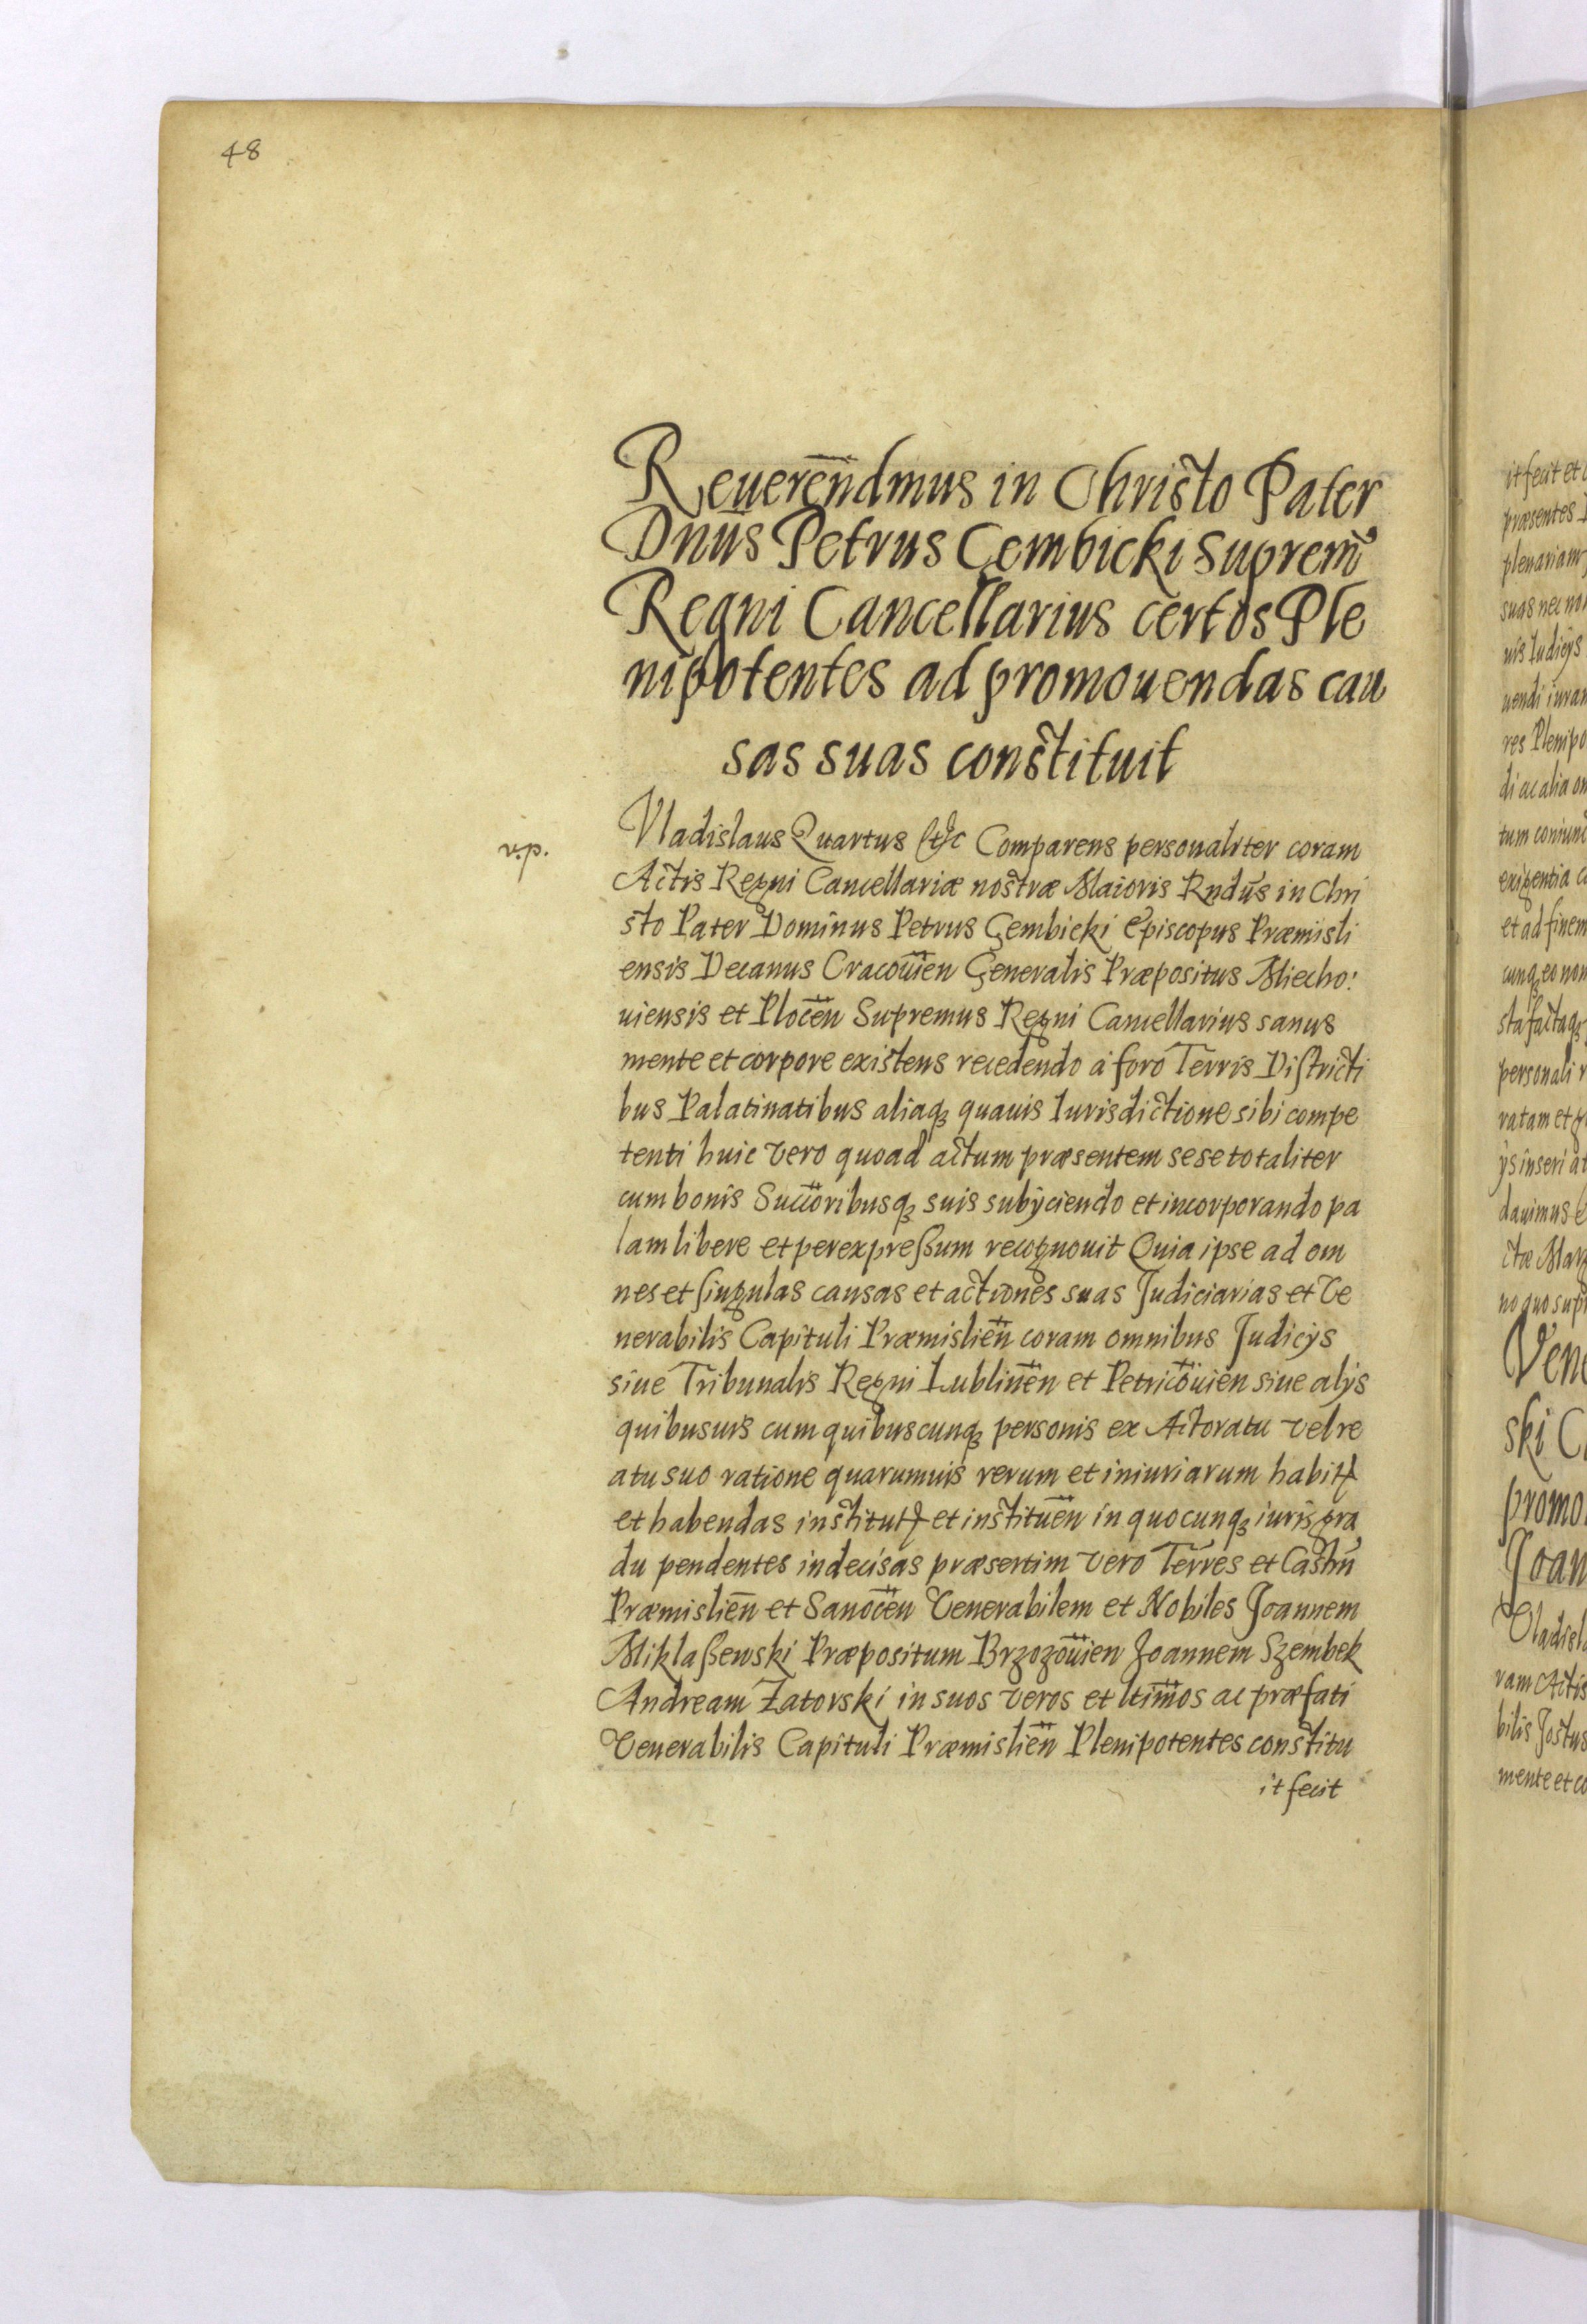 48
Reuerēndmus in Christo Pater
Dnūs Petrus Gembicki Suprem̃
Regni Cancellarius certos Ple
nipotentes ad promouendas cau
sas suas constituit
Vladislaus Quartus etc Comparens personaliter coram
Actis Regni Cancellariæ nostræ Maioris Rndūs in Chri
sto Pater Dominus Petrus Gembicki Episcopus Præmisli
ensis Decanus Cracouīen Generalis Præpositus Miecho:
uiensis et Plocēn Supremus Regni Cancellarius sanus
mente et corpore existens recedendo à foro Terris Districti
bus Palatinatibus aliaqȝ quauis Iurisdictione sibi compe
tenti huic vero quoad actum præsentem sese totaliter
cum bonis Succōribusqȝ suis subijciendo et incorporando pa
lam libere et per expreßum recognouit Quia ipse ad om
nes et singulas causas et actiones suas Judiciarias et Ve
nerabilis Capituli Præmisliēn coram omnibus Judicijs
siue Tribunalis Regni Lublinēn et Petricōuien siue alijs
quibusuis cum quibuscunqȝ personis ex Actoratu vel re
atu suo ratione quarumuis rerum et iniuriarum habitꝭ
et habendas institutꝭ et instituēn in quocunqȝ iuris gra
du pendentes indecisas præsertim vero Terres et Castrn̄
Præmisliēn et Sanocēn Venerabilem et Nobiles Joannem
Miklaßewski Præpositum Brzozōuien Joannem Szembek
Andream Zatorski in suos veros et ltīmos ac præfati
Venerabilis Capituli Præmisliēn Plenipotentes constitu
it fecit